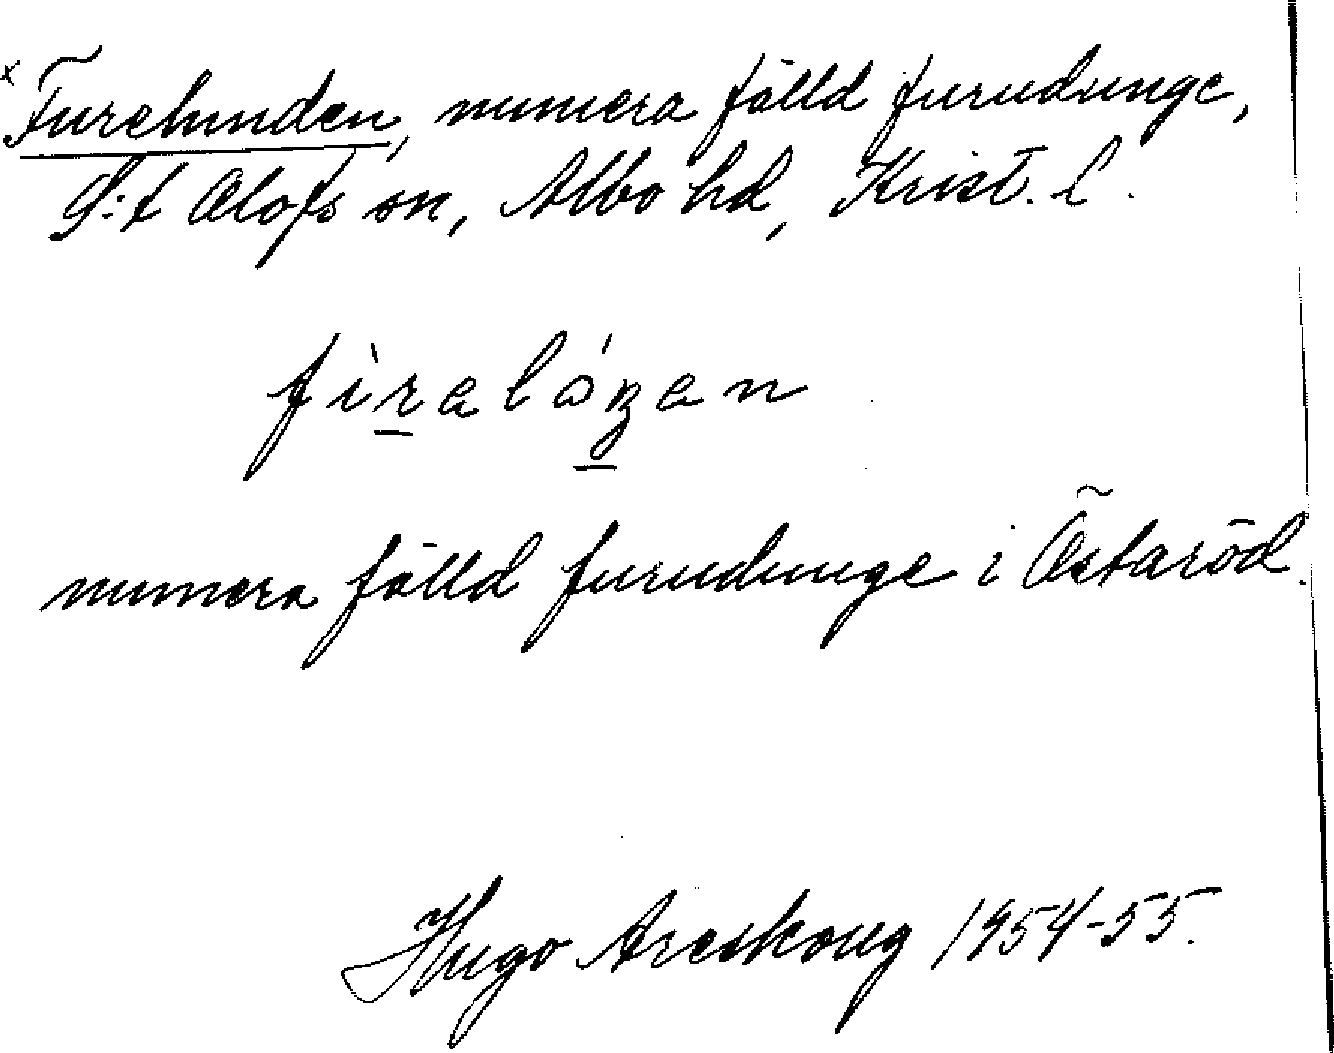 x Furelunden, numera fälld furudunge,
S:t Olofs sn, Albo hd, Krist. l.
numera fälld furudunge i Östaröd.
Hugo Areskoug 1954-55.